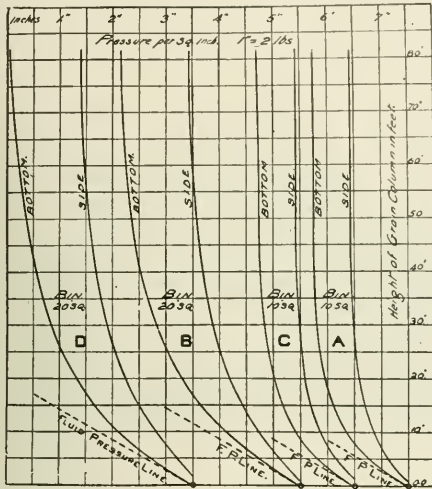 inches 1" 2" 3" 4" 5" 6" 7"
Pressure per sq. inch. 1"=2 lbs
80'
70'
60'
50'
40'
30'
20'
10'
00
Height of Grain Column in feet.
BOTTOM.
SIDE
BOTTOM.
SIDE
BOTTOM
SIDE
BOTTOM
SIDE
BIN
20 SQ
D
BIN
20 SQ
B
BIN
10 SQ
C
BIN
10 SQ
A
FLUID PRESSURE LINE.
F. P. LINE.
F. P. LINE.
F. P. LINE.